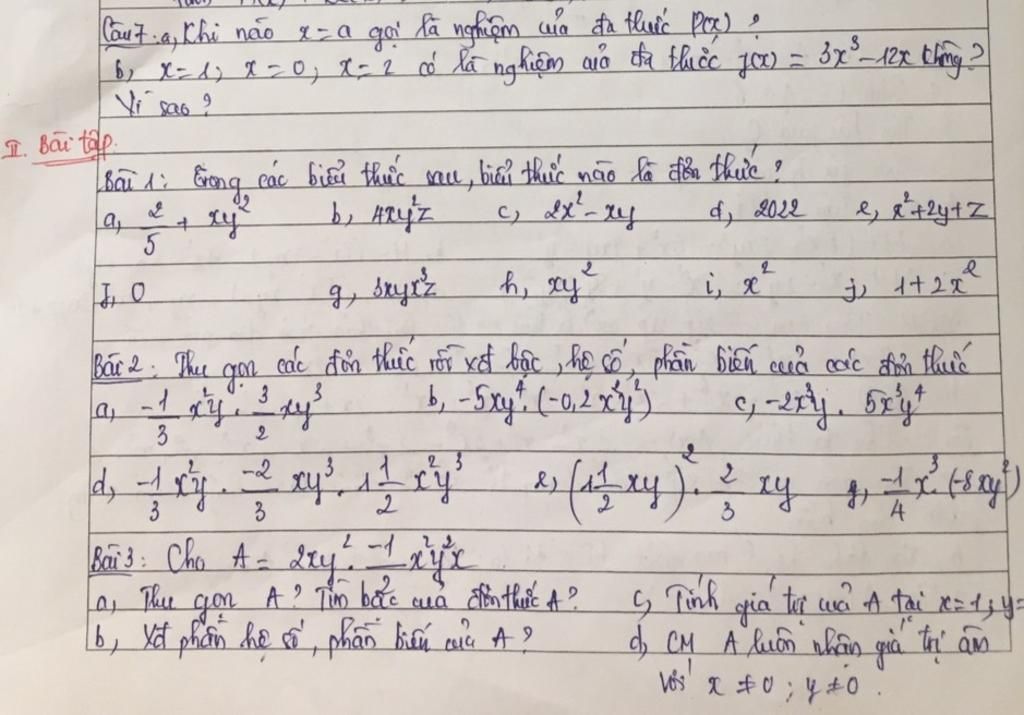 Câu 7: a, Khi nào x = a gọi là nghiệm của đa thức P(x) ?
b, x = 1; x = 0; x = 2 có là nghiệm của đa thức f(x) = 3x³ - 12x không?
Vì sao ?
II. Bài tập.
Bài 1: Trong các biểu thức sau, biểu thức nào là đơn thức ?
a, 2/5 + xy² b, 4xy²z c, 2x² - xy d, 2022 e, x² + 2y + z
f, 0 g, 3xyx³z h, xy² i, x² j, 1 + 2x²
Bài 2: Thu gọn các đơn thức rồi xét bậc, hệ số, phần biến của các đơn thức
a, -1/3 x²y . 3/2 xy³ b, -5xy⁴ . (-0,2x²y²) c, -2x³y . 5x³y⁴
d, -1/3 x²y . -2/3 xy³ . 1 1/2 x²y³ e, (1 1/2 xy)² . 2/3 xy g, -1/4 x³ . (-8xy²)
Bài 3: Cho A = 2xy² . -1/2 x²y²x
a, Thu gọn A ? Tìm bậc của đơn thức A ? c, Tính giá trị của A tại x = 1; y =
b, Xét phần hệ số, phần biến của A ? d, CM A luôn nhận giá trị âm
với x ≠ 0 ; y ≠ 0 .